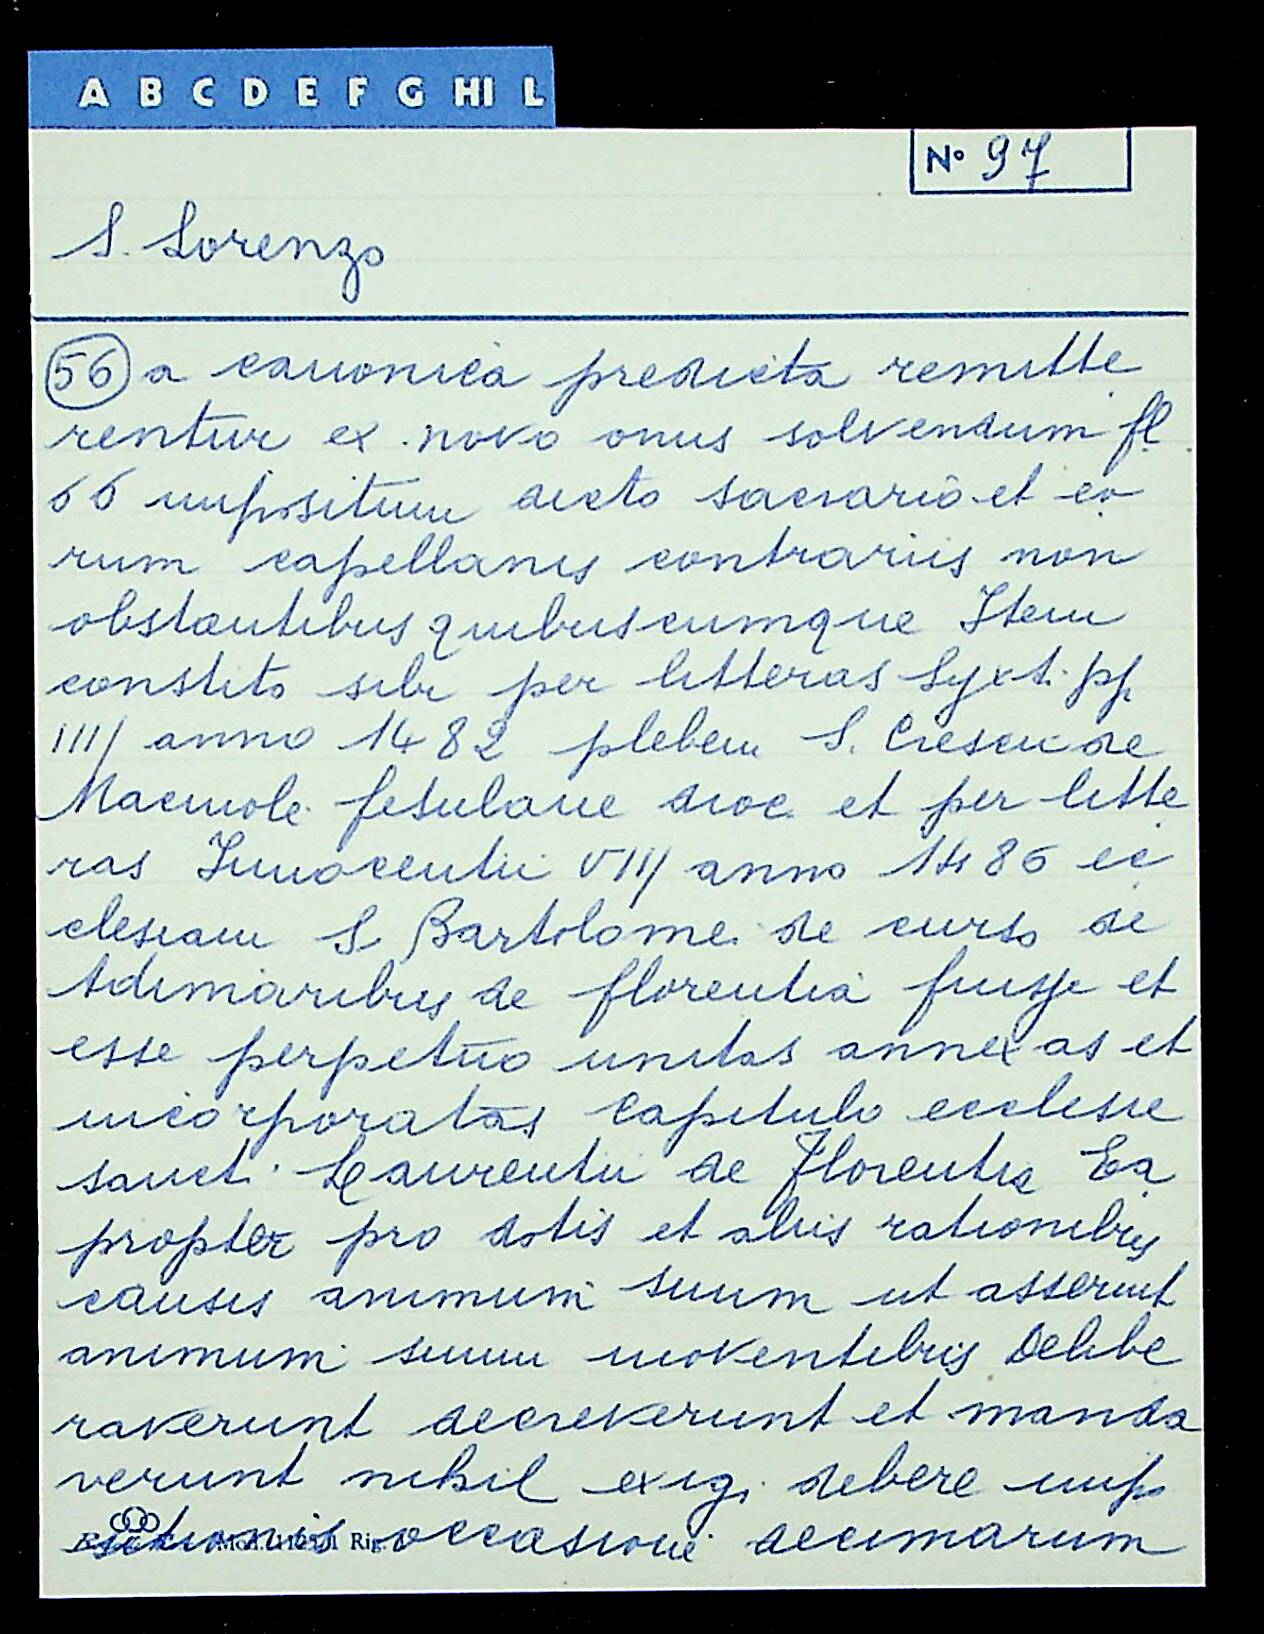 A B C D E F G HI L
N° 97
S. Lorenzo
56 a canonica predicta remitte
rentur ex novo onus solvendum fl
66 impositum dicto sacrario et eo
rum capellanis contrariis non
obstantibus quibuscumque Item
constito sibi per litteras Syxti pp
IIII anno 1482 plebem S. Cresci de
Maciuole fesulane dioc. et per litte
ras Innocentii VIII anno 1486 ec
clesiam S Bartolomei de curso de
Adimaribus de florentia fuisse et
esse perpetuo unitas annexas et
incorporatas Capitulo ecclesie
sancti Laurentii de Florentia Ea
propter pro dotis et aliis rationibus
causis animum suum ut asserunt
animum suum moventibus Delibe
raverunt decreverunt et manda
verunt nihil exigi debere impo
sitionis occasione decimarum